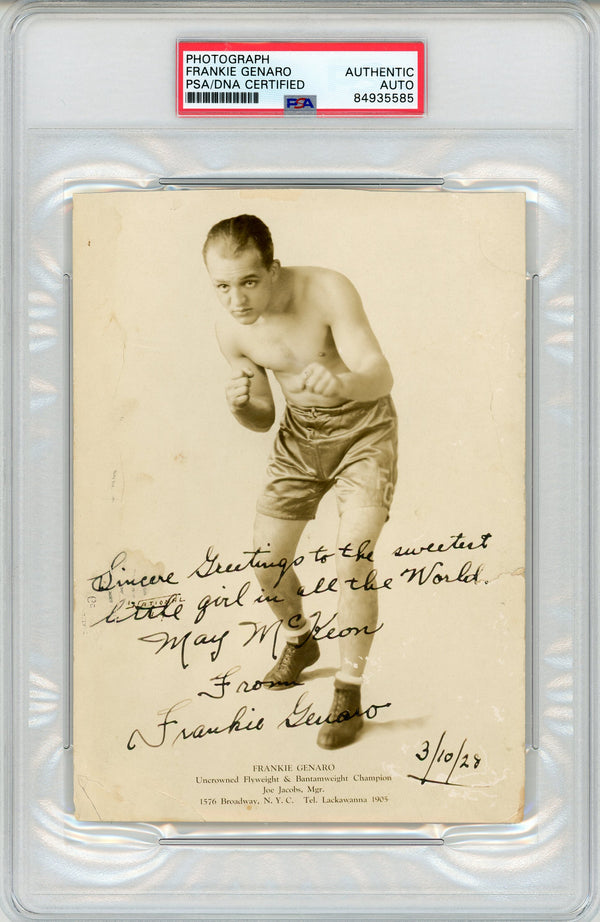 PHOTOGRAPH
FRANKIE GENARO
PSA/DNA CERTIFIED
AUTHENTIC
AUTO
84935585
PSA
Sincere Greetings to the sweetest
little girl in all the World.
May McKeon
From
Frankie Genaro
3/10/28
FRANKIE GENARO
Uncrowned Flyweight & Bantamweight Champion
Joe Jacobs, Mgr.
1576 Broadway, N. Y. C. Tel. Lackawanna 1905